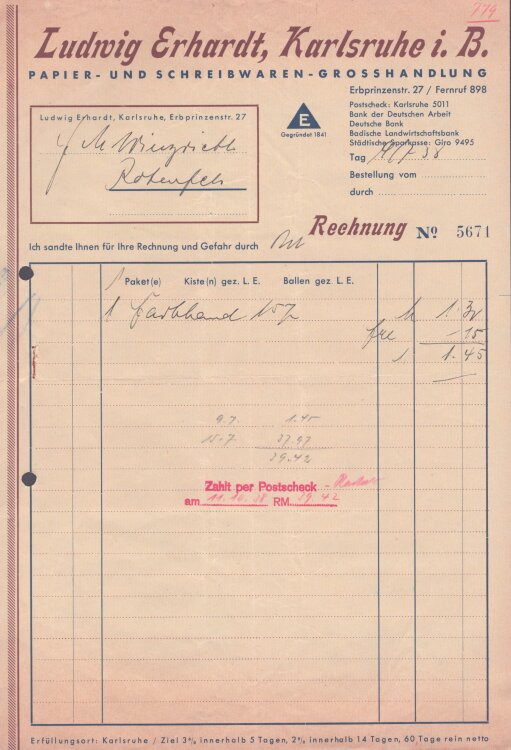 779
Ludwig Erhardt, Karlsruhe i. B.
PAPIER- UND SCHREIBWAREN-GROSSHANDLUNG
Erbprinzenstr. 27 / Fernruf 898
Postscheck: Karlsruhe 5011
Bank der Deutschen Arbeit
Deutsche Bank
Badische Landwirtschaftsbank
Städtische Sparkasse: Giro 9495
E
Gegründet 1841
Ludwig Erhardt, Karlsruhe, Erbprinzenstr. 27
Rotenfels
Tag
Bestellung vom
durch
Rechnung No 5671
Ich sandte Ihnen für Ihre Rechnung und Gefahr durch
1 Paket(e) Kiste(n) gez. L. E. Ballen gez. L. E.
1 Farbband 1.30
-15
1.45
9.7. 1.45
15.7. 37.97
39.42
Zahlt per Postscheck
am RM 39.42
Erfüllungsort: Karlsruhe / Ziel 3%, innerhalb 5 Tagen, 2%, innerhalb 14 Tagen, 60 Tage rein netto